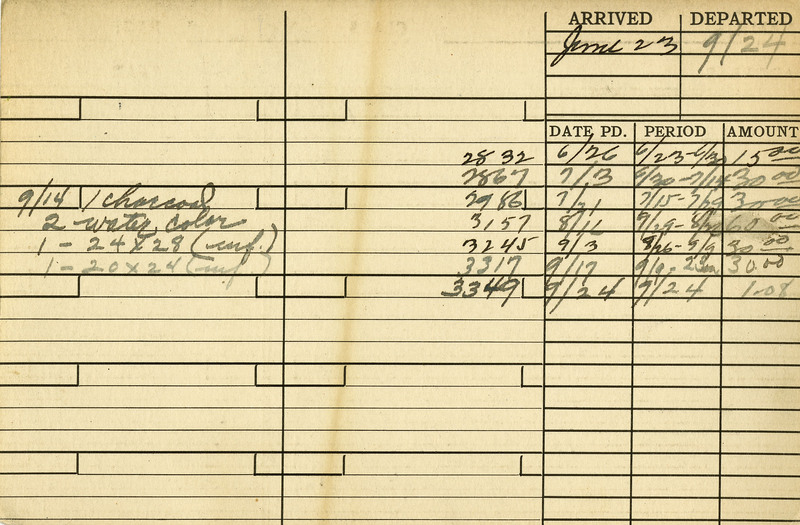 ARRIVED DEPARTED
June 23 9/24
DATE PD. PERIOD AMOUNT
2832 6/26 6/23-6/30 15 00
2867 7/3 6/30-7/14 30 00
9/14 1 charcoal 2986 7/21 7/15-7/29 30 00
2 water color 3157 8/11 7/29-8/26 60 00
1 - 24 x 28 (unf.) 3245 9/3 8/26-9/9 30 00
1 - 20 x 24 (unf.) 3317 9/17 9/9-23 30.00
3349 9/24 9/24 1.08